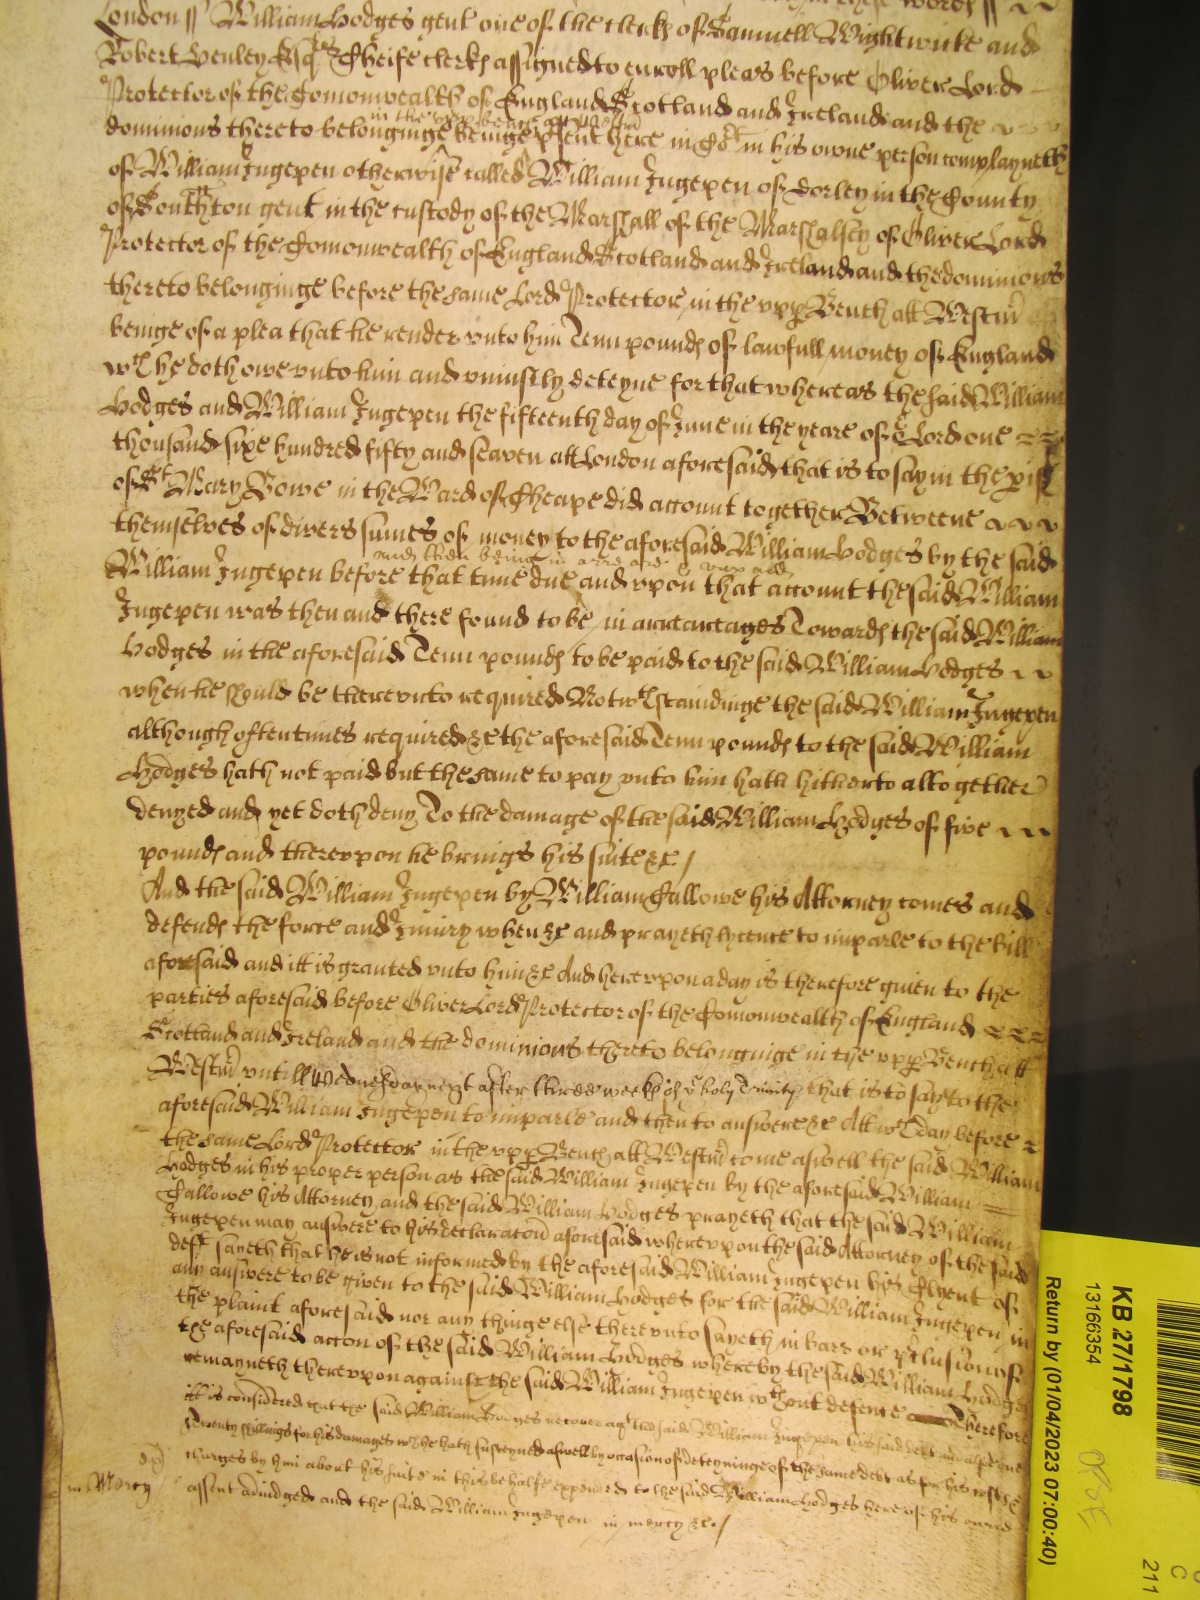 in these words //
London // William Hodges gent one of the clerks of Samuell Wightwicke and
Robert Henley Esqrs Cheife clerks assigned to enroll pleas before Oliver Lord
Protector of the Comonwealth of England Scotland and Ireland and the
in the upp bench att Westm
dominions thereto belonginge beinge psent here in Cort in his owne person complayneth
of William Ingepen otherwise called William Ingepen of Dorley in the County
of Southton gent in the custody of the Marshall of the Marshalsey of Oliver Lord
Protector of the Comonwealth of England Scotland and Ireland and the dominions
thereto belonginge before the same Lord Protector in the upp Bench att Westm
beinge of a plea that he render unto him Tenn pounds of lawfull money of England
wch he doth owe unto him and uniustly deteyne for that whereas the said William
Hodges and William Ingepen the fifteenth day of June in the yeare of or Lord one
thousand sixe hundred fifty and seaven att London aforesaid that is to say in the pish
of St Mary Bowe in the Ward of Cheape did account together Betweene
themselves of divers sumes of money to the aforesaid William Hodges by the said
and then being in
William Ingepen before that time due and upon that account the said William
Ingepen was then and there found to be in arrearages Towards the said William
Hodges in the aforesaid Tenn pounds to be paid to the said William Hodges
when he should be thereunto required Notwthstandinge the said William Ingepen
although oftentimes required &c the aforesaid Tenn pounds to the said William
Hodges hath not paid but the same to pay unto him hath hitherto altogether
denyed and yet doth deny To the damage of the said William Hodges of five
pounds and thereupon he brings his suite &c /
And the said William Ingepen by William Fallowe his Attorney comes and
defends the force and Iniury when &c and prayeth lycence to imparle to the bill
aforesaid and itt is granted unto him &c And hereupon a day is therefore given to the
parties aforesaid before Oliver Lord Protector of the Comonwealth of England
Scotland and Ireland and the dominions thereto belonginge in the upp Bench att
Westm untill Wednesday next after three weekes of ye holy Trinity that is to say to the
aforesaid William Ingepen to imparle and then to answere &c Att wch day before
the same Lord Protector in the upp Bench att Westm come aswell the said William
Hodges in his proper person as the said William Ingepen by the aforesaid William
Fallowe his Attorney and the said William Hodges prayeth that the said William
Ingepen may answere to his declaracon aforesaid whereupon the said Attorney of the said
deft sayeth that he is not informed by the aforesaid William Ingepen his Clyent of
any answere to be given to the said William Hodges for the said William Ingepen in
the plaint aforesaid nor any thinge else thereunto sayeth in barr or pclusion of
the aforesaid accon of the said William Hodges whereby the said William Hodges
remayneth thereupon against the said William Ingepen wthout defence Therefore
itt is considered that the said William Hodges recover agt the said William Ingepen his said debt and alsoe
Twenty shillings for his damages wch he hath susteyned aswell by occasion of deteyninge of the same debt as for his costs &
charges by him about his suite in this behalfe expended to the said William Hodges here of his owne
in Mercy
assent adiudged and the said William Ingepen in mercy &c. /
KB 27/1798
13166354
Return by (01/04/2023 07:00:40)
C
211